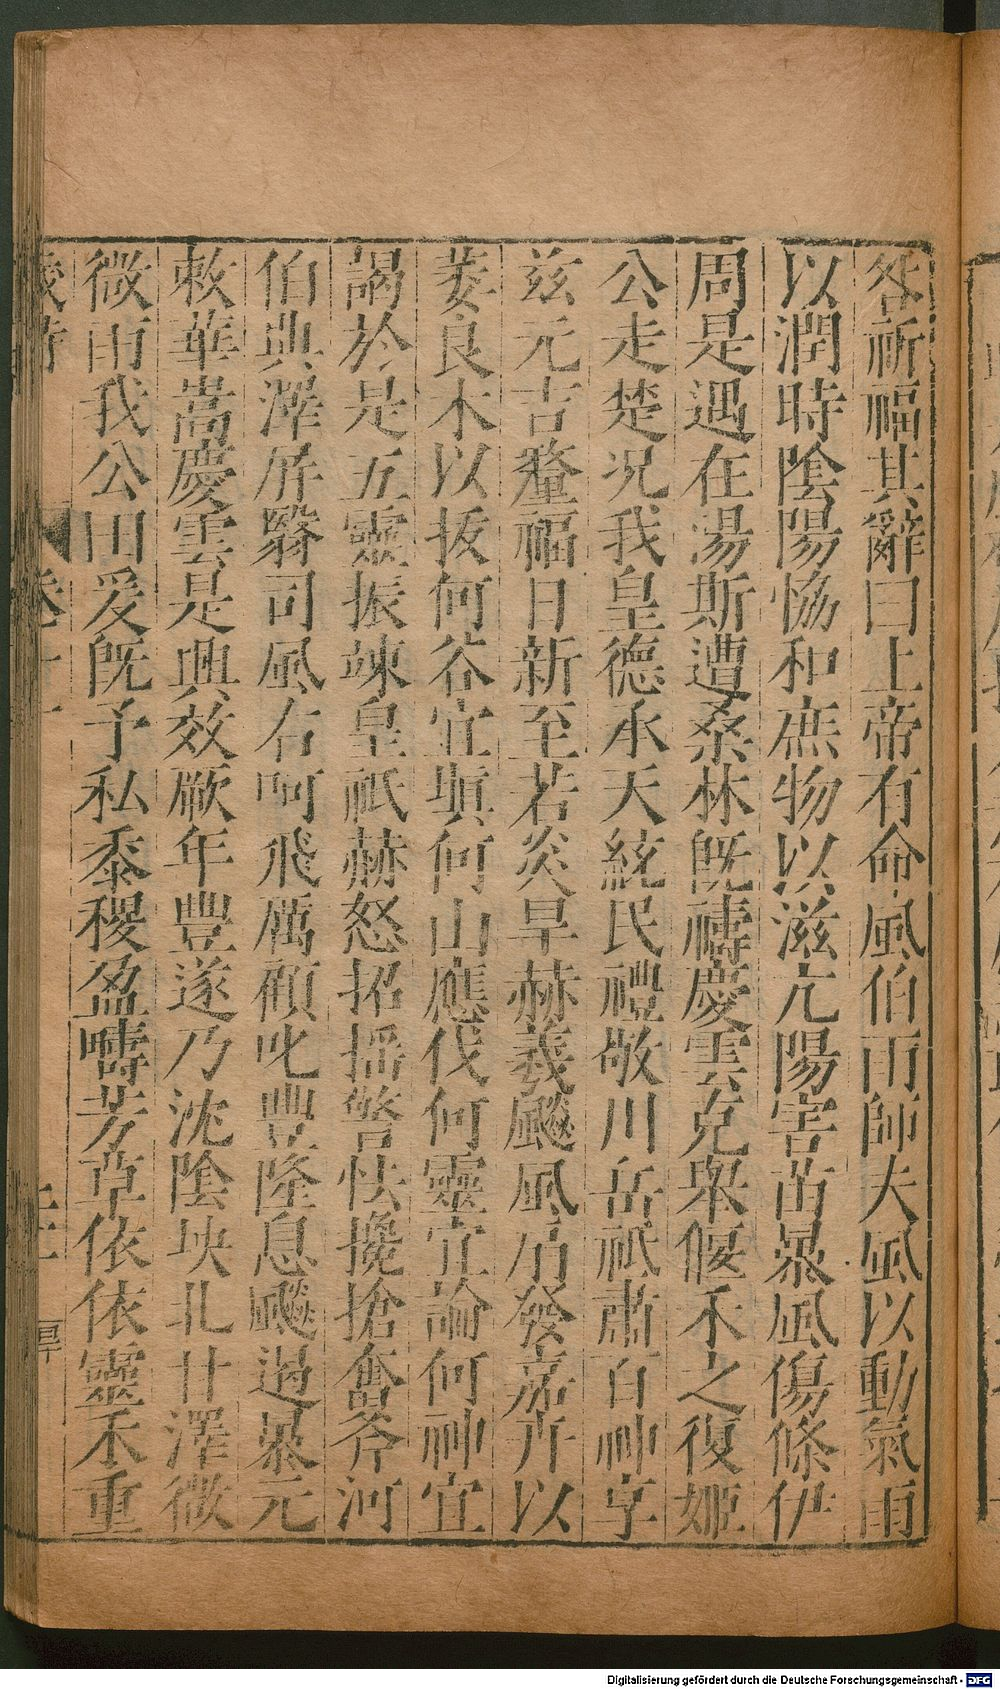 咎祈福其辭曰上帝有命風伯雨師夫風以動氣雨
以潤時陰陽恊和庶物以滋亢陽害苗暴風傷條伊
周是遇在湯斯遭桑林旣禱慶雲克舉偃禾之復姬
公走楚况我皇德承天統民禮敬川岳祇肅百神享
兹元吉釐福日新至若炎旱赫羲飈風扇發嘉卉以
萎良木以拔何谷宜塡何山應伐何靈宜論何神宜
謁於是五靈振竦皇祇赫怒招摇警怯攙搶奮斧河
伯典澤屏翳司風右呵飛厲顧叱豐隆息飈遏暴元
敕華嵩慶雲是興效厥年豐遂乃沈陰坱圠甘澤微
微雨我公田爰旣予私黍稷盈疇芳草依依靈禾重
卷十一
Digitalisierung gefördert durch die Deutsche Forschungsgemeinschaft - DFG